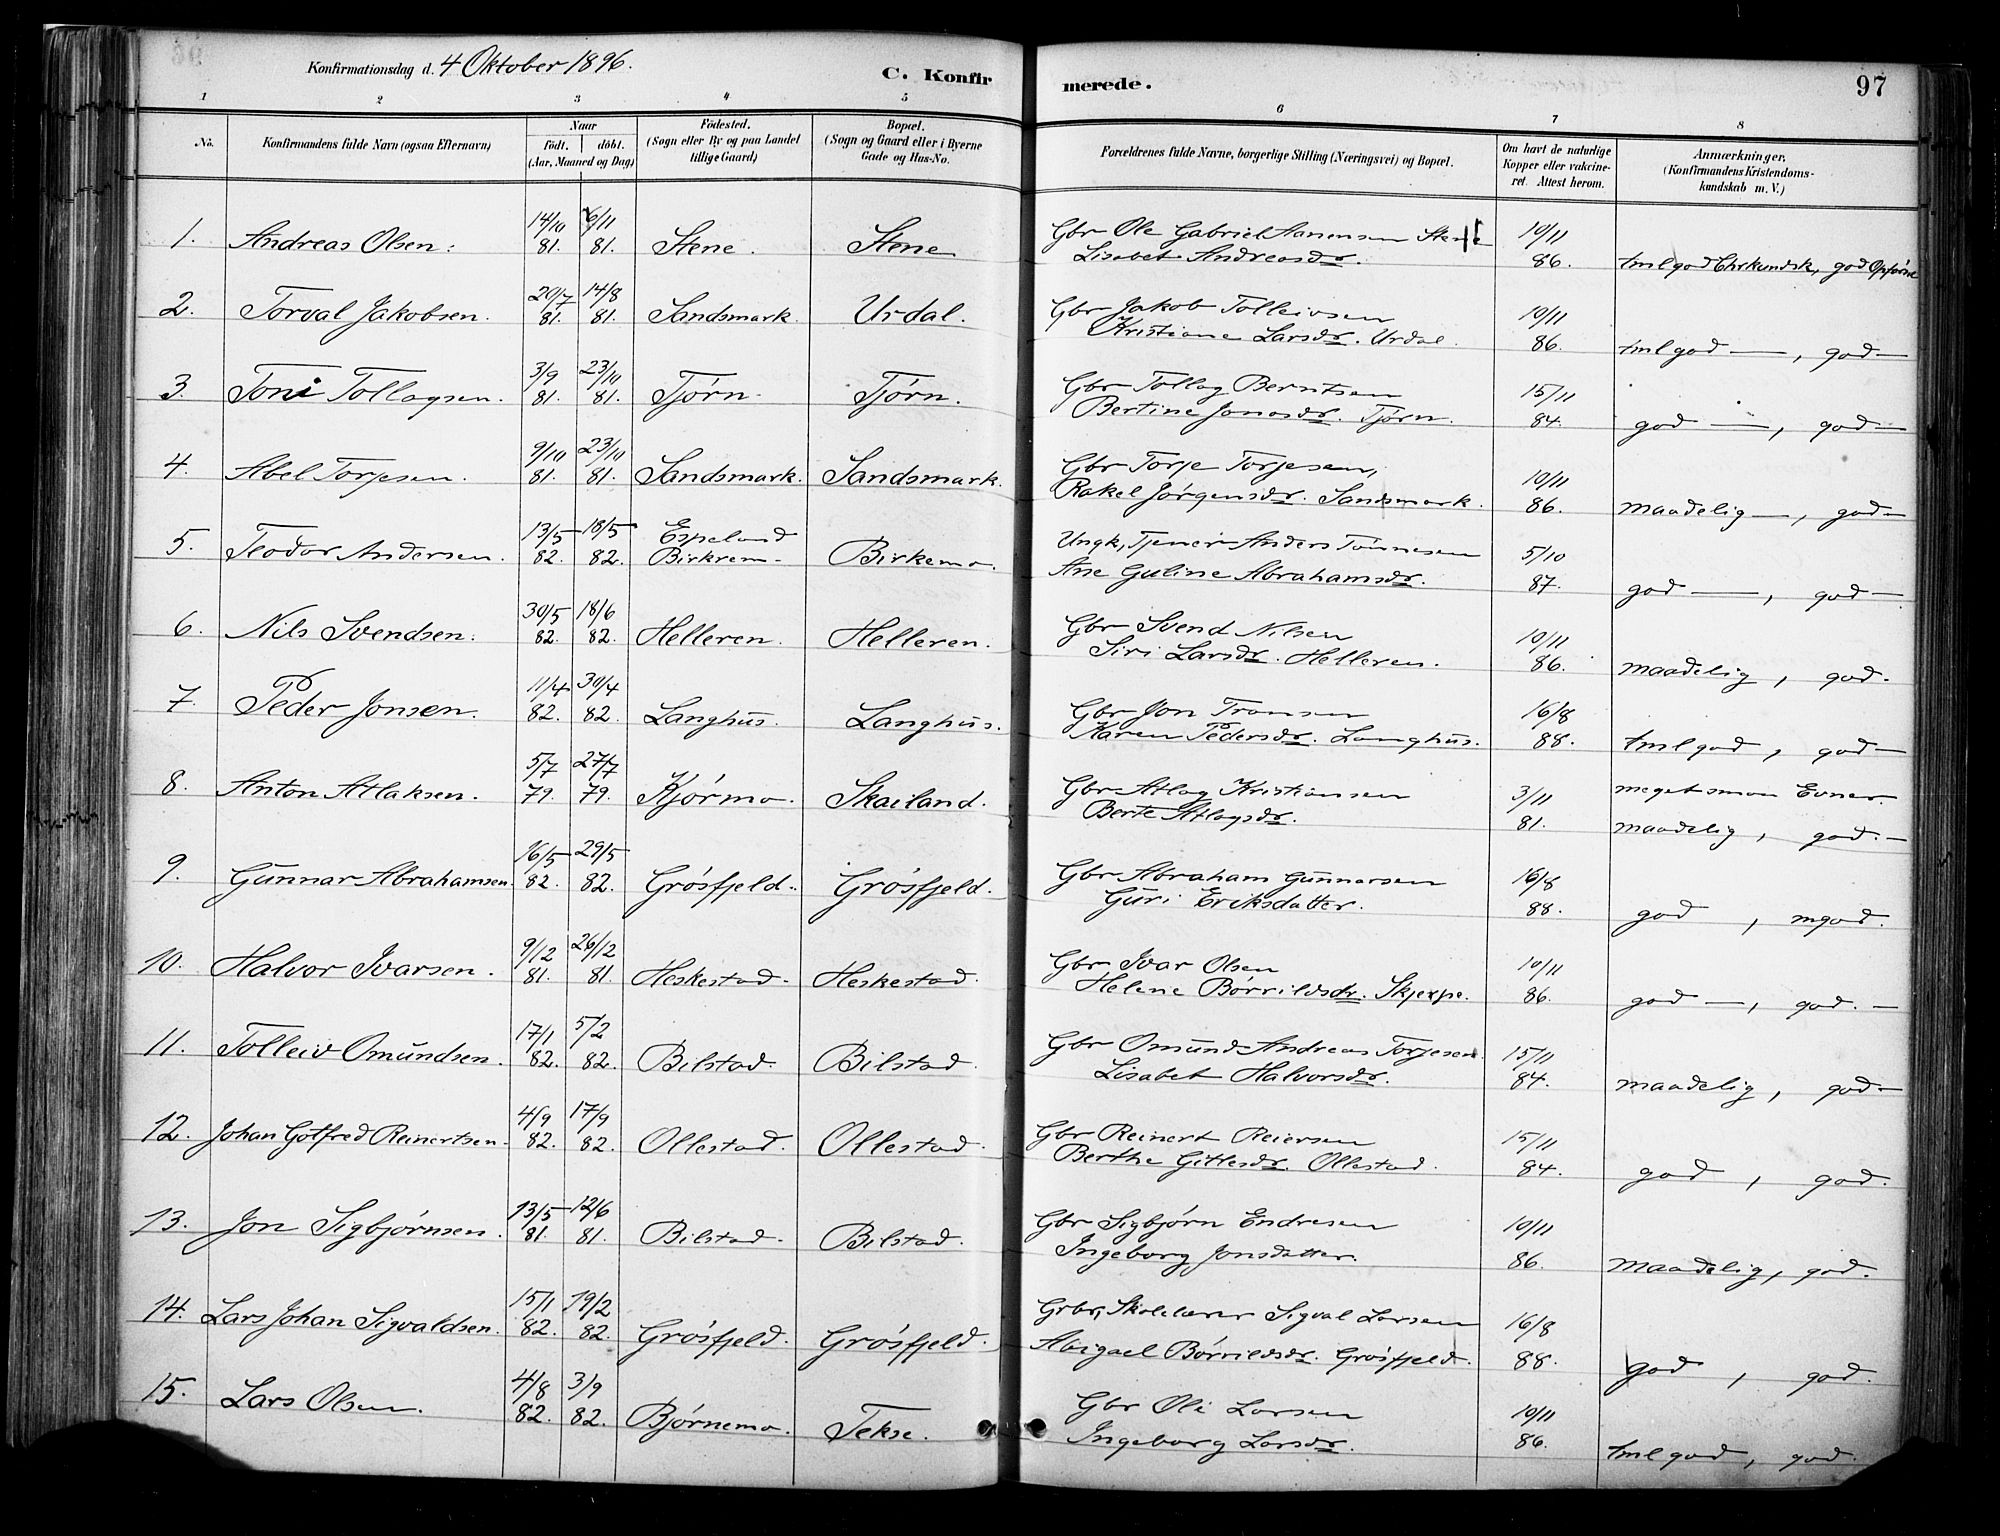 Konfirmationsdag d. 4 Oktober 1896.
C. Konfir merede.
97
1 2 3 4 5 6 7 8
No.
Konfirmandens fulde Navn (ogsaa Efternavn)
Naar
födt. döbt.
(Aar, Maaned og Dag)
Födested.
(Sogn eller By og paa Landet
tillige Gaard)
Bopæl.
(Sogn og Gaard eller i Byerne
Gade og Hus-No.
Forældrenes fulde Navne, borgerlige Stilling (Næringsvei) og Bopæl.
Om havt de naturlige
Kopper eller vakcine-
ret. Attest herom.
Anmærkninger.
(Konfirmandens Kristendoms-
kundskab m. V.)
1. Andreas Olsen. 14/10 81. 6/11 81. Stene. Stene Gbr Ole Gabriel Aanensen Stene
Lisabet Andreasdr. 10/11 86. tml god Chrkundsk, god Opførsel
2. Torval Jakobsen. 20/7 81. 14/8 81. Sandsmark. Urdal. Gbr Jakob Tolleivsen
Kristiane Larsdr. Urdal. 10/11 86. tml god —, god —
3. Toni Tollagsen. 3/9 81. 23/10 81. Tjørn. Tjørn. Gbr Tollag Berntsen
Bertine Jonasdr. Tjørn. 15/11 84. god —, god —
4. Abel Torjesen. 9/10 81. 23/10 81. Sandsmark. Sandsmark. Gbr Torje Torjesen,
Rakel Jørgensdr. Sandsmark. 10/11 86. maadelig —, god —
5. Teodor Andersen. 13/5 82. 18/5 82. Espeland Birkrem. Birkemo. Ungk, Tjener Anders Tønnesen
Ane Guline Abrahamsdr. 5/10 87. god —, god —
6. Nils Svendsen. 30/5 82. 18/6 82. Helleren. Helleren. Gbr Svend Nilsen
Siri Larsdr. Helleren. 10/11 86. maadelig, god.
7. Peder Jonsen. 11/4 82. 30/4 82. Langhus. Langhus. Gbr Jon Tronsen
Karen Pedersdr. Langhus. 16/8 88. tml god, god —
8. Anton Atlaksen. 5/7 79. 27/7 79. Kjørmo. Skailand. Gbr Atlag Kristiansen
Berte Atlagsdr. 3/11 81. meget smaa Evner.
maadelig, god. —
9. Gunnar Abrahamsen. 16/5 82. 29/5 82. Grøsfjeld. Grøsfjeld. Gbr Abraham Gunnarsen
Guri Eriksdatter. 16/8 88. god, mgod.
10. Halvor Ivarsen. 9/12 81. 26/12 81. Heskestad. Heskestad. Gbr Ivar Olsen
Helene Børrildsdr. Skjerpe. 10/11 86. god —, god. —
11. Tolleiv Omundsen. 17/1 82. 5/2 82. Bilstad. Bilstad. Gbr Omund Andreas Torjesen.
Lisabet Halvorsdr. 15/11 84. maadelig, god —
12. Johan Gotfred Reinertsen. 4/9 82. 17/9 82. Ollestad. Ollestad. Gbr Reinert Reiersen
Berthe Gittesdr. Ollestad. 15/11 84. god, god.
13. Jon Sigbjørnsen. 13/5 81. 12/6 81. Bilstad. Bilstad. Gbr Sigbjørn Endresen
Ingeborg Jonsdatter. 10/11 86. maadelig, god.
14. Lars Johan Sigvaldsen. 15/1 82. 19/2 82. Grøsfjeld. Grøsfjeld. Grbr, Skolelærer Sigval Larsen
Abigael Børrildsdr. Grøsfjeld. 16/8 88. god, god.
15. Lars Olsen. 4/8 82. 3/9 82. Bjørnemo. Tekse. Gbr Ole Larsen
Ingeborg Larsdr. 10/11 86. tml god, god.